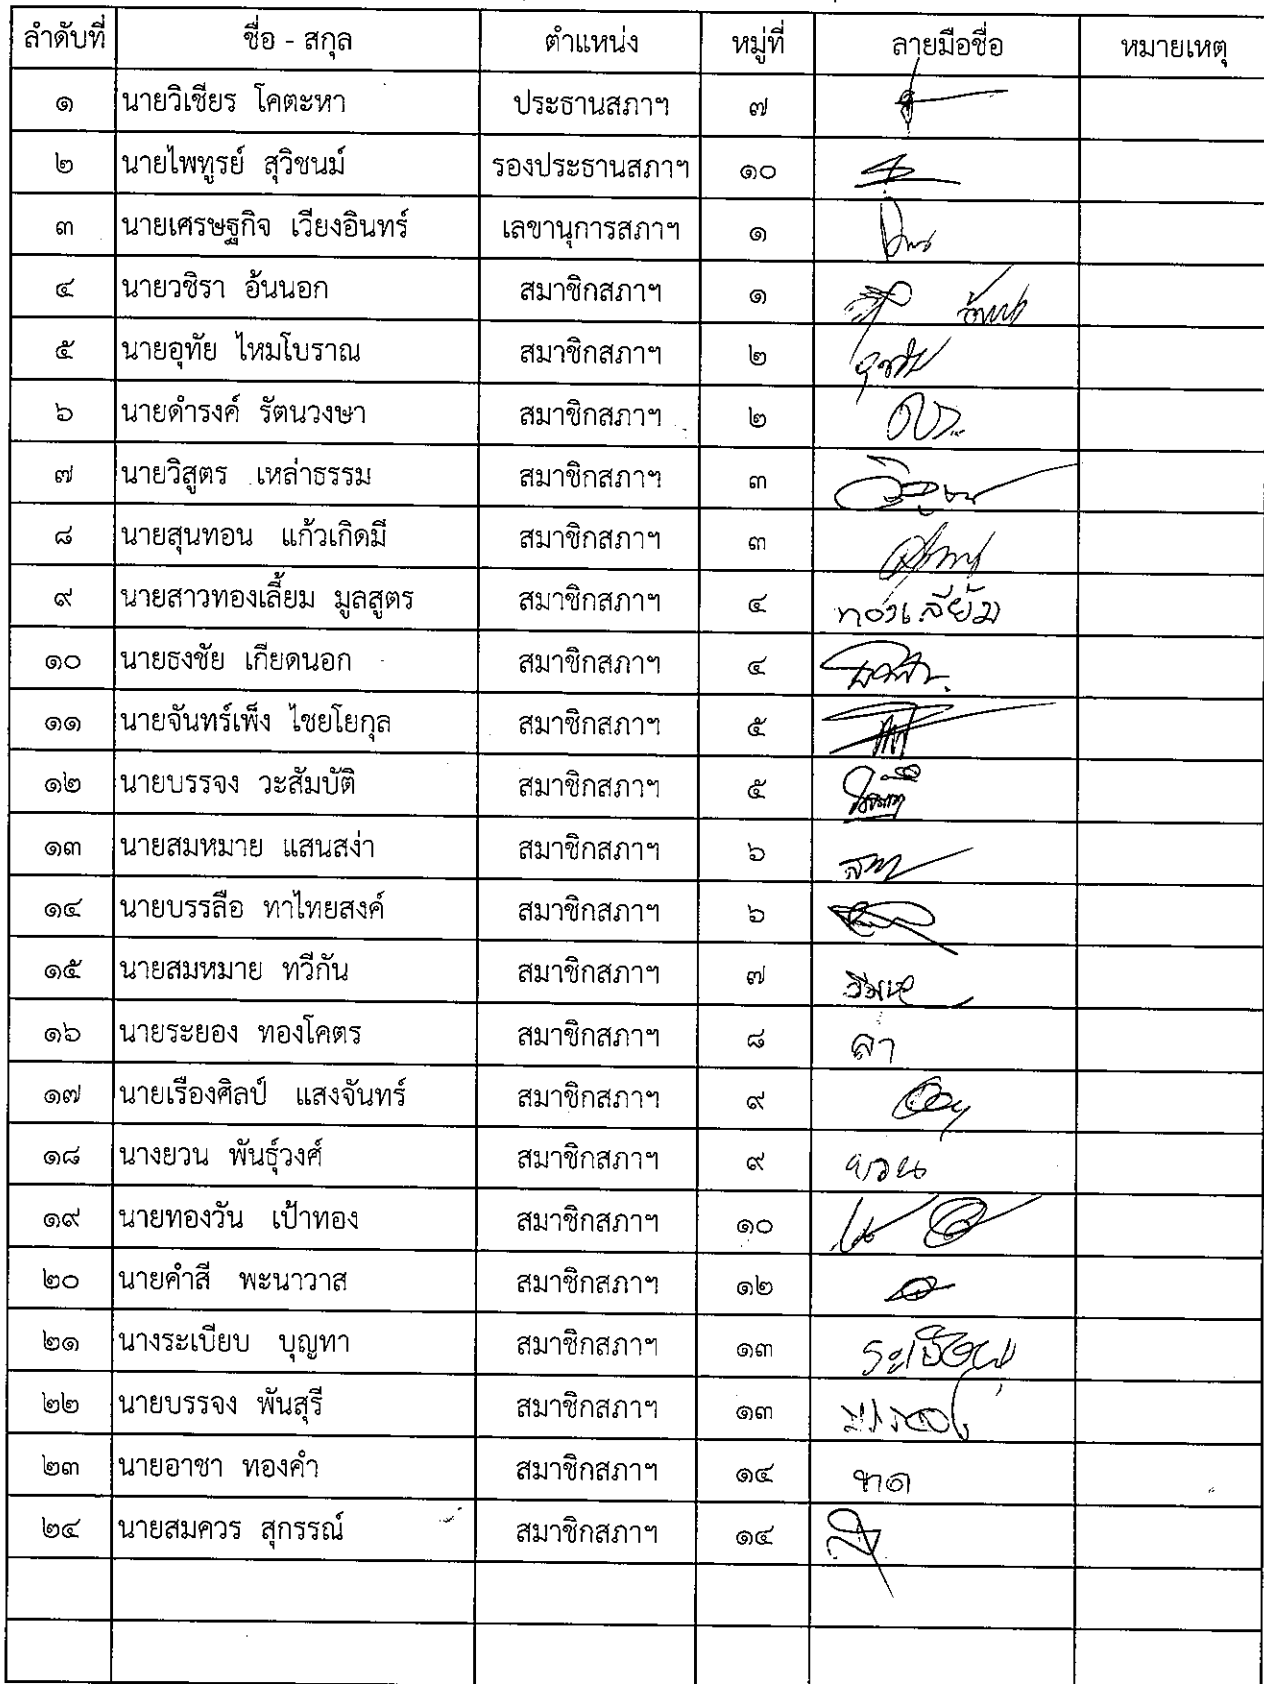 ลำดับที่ ชื่อ - สกุล ตำแหน่ง หมู่ที่ ลายมือชื่อ หมายเหตุ
๑ นายวิเชียร โคตะหา ประธานสภาฯ ๗
๒ นายไพทูรย์ สุวิชนม์ รองประธานสภาฯ ๑๐
๓ นายเศรษฐกิจ เวียงอินทร์ เลขานุการสภาฯ ๑
๔ นายวชิรา อ้นนอก สมาชิกสภาฯ ๑
๕ นายอุทัย ไหมโบราณ สมาชิกสภาฯ ๒
๖ นายดำรงค์ รัตนวงษา สมาชิกสภาฯ ๒
๗ นายวิสูตร เหล่าธรรม สมาชิกสภาฯ ๓
๘ นายสุนทอน แก้วเกิดมี สมาชิกสภาฯ ๓
๙ นายสาวทองเลี้ยม มูลสูตร สมาชิกสภาฯ ๔ ทองเลี้ยม
๑๐ นายธงชัย เกียดนอก สมาชิกสภาฯ ๔
๑๑ นายจันทร์เพ็ง ไชยโยกุล สมาชิกสภาฯ ๕
๑๒ นายบรรจง วะสัมบัติ สมาชิกสภาฯ ๕
๑๓ นายสมหมาย แสนสง่า สมาชิกสภาฯ ๖
๑๔ นายบรรลือ ทาไทยสงค์ สมาชิกสภาฯ ๖
๑๕ นายสมหมาย ทวีกัน สมาชิกสภาฯ ๗
๑๖ นายระยอง ทองโคตร สมาชิกสภาฯ ๘
๑๗ นายเรืองศิลป์ แสงจันทร์ สมาชิกสภาฯ ๙
๑๘ นางยวน พันธุ์วงศ์ สมาชิกสภาฯ ๙ ยวน
๑๙ นายทองวัน เป้าทอง สมาชิกสภาฯ ๑๐
๒๐ นายคำสี พะนาวาส สมาชิกสภาฯ ๑๒
๒๑ นางระเบียบ บุญทา สมาชิกสภาฯ ๑๓ ระเบียบ
๒๒ นายบรรจง พันสุรี สมาชิกสภาฯ ๑๓
๒๓ นายอาชา ทองคำ สมาชิกสภาฯ ๑๔
๒๔ นายสมควร สุกรรณ์ สมาชิกสภาฯ ๑๔